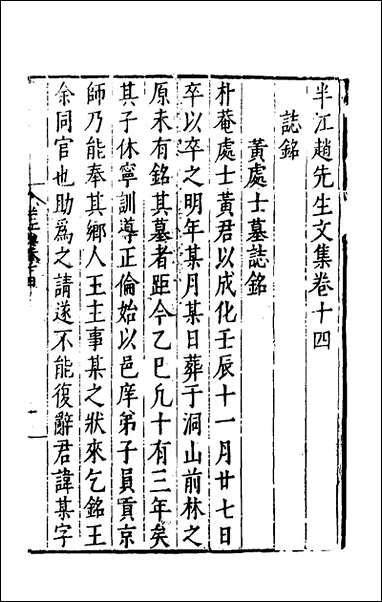 半江趙先生文集卷十四
誌銘
黃處士墓誌銘
朴菴處士黃君以成化壬辰十一月廿七日
卒以卒之明年某月某日葬于洞山前林之
原未有銘其墓者距今乙巳凡十有三年矣
其子休寧訓導正倫始以邑庠弟子員貢京
師乃能奉其鄉人王主事某之狀來乞銘王
余同官也助為之請遂不能復辭君諱某字